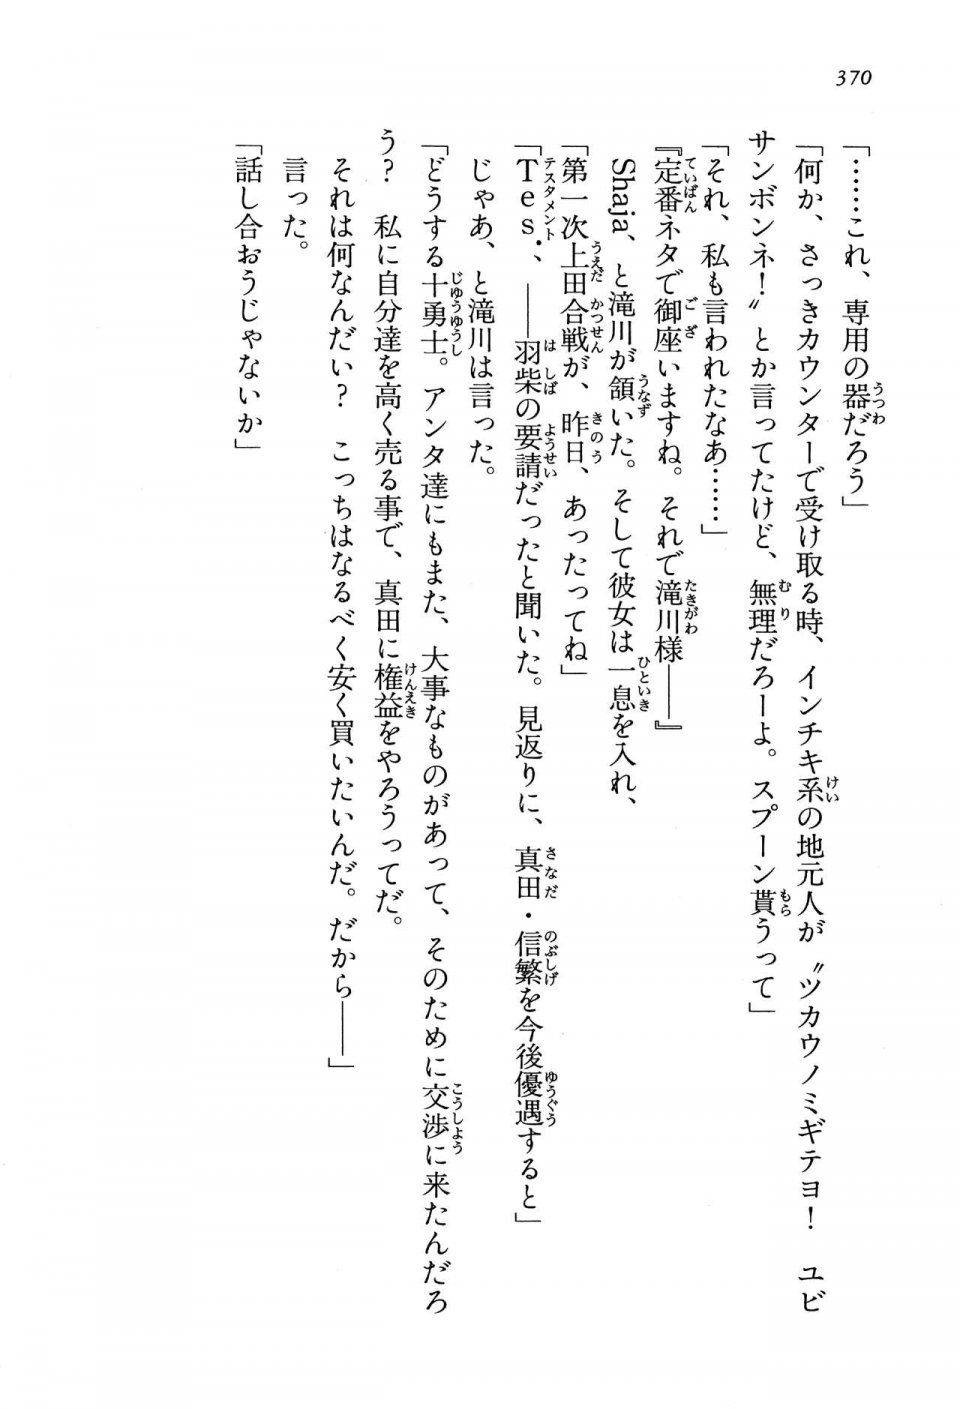 370
「……これ、専用の器だろう」
「何か、さっきカウンターで受け取る時、インチキ系の地元人が〝ツカウノミギテヨ！　ユビ
サンボンネ！〟とか言ってたけど、無理だろーよ。スプーン貰うって」
「それ、私も言われたなあ……」
『定番ネタで御座いますね。それで滝川様――』
Shaja、と滝川が頷いた。そして彼女は一息を入れ、
「第一次上田合戦が、昨日、あったってね」
「Tes.、――羽柴の要請だったと聞いた。見返りに、真田・信繁を今後優遇すると」
じゃあ、と滝川は言った。
「どうする十勇士。アンタ達にもまた、大事なものがあって、そのために交渉に来たんだろ
う？　私に自分達を高く売る事で、真田に権益をやろうってだ。
それは何なんだい？　こっちはなるべく安く買いたいんだ。だから――」
言った。
「話し合おうじゃないか」